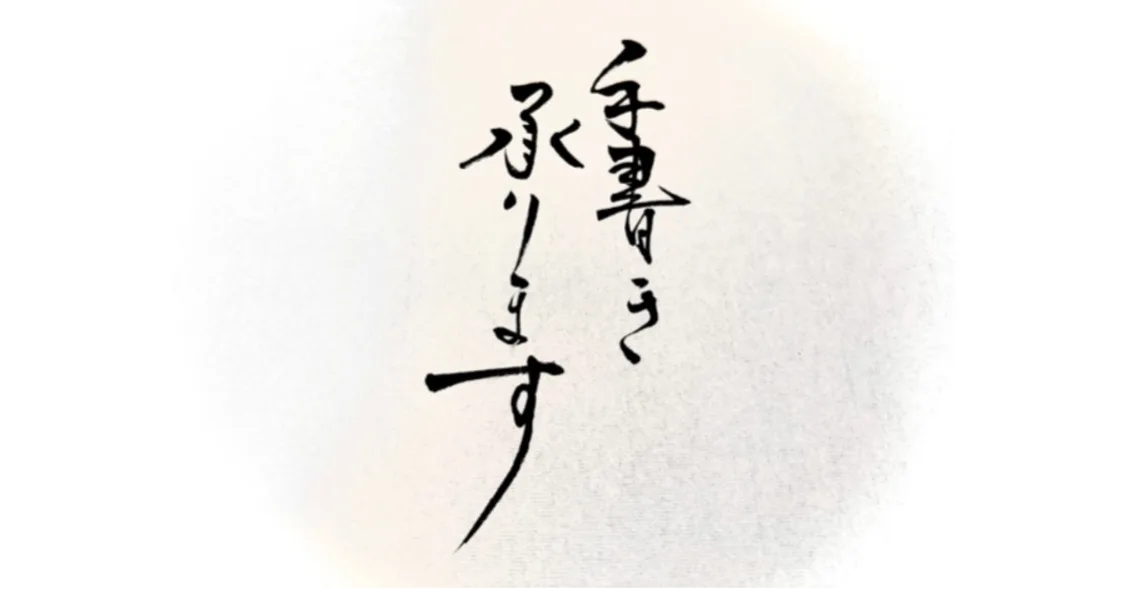 手書き
承ります